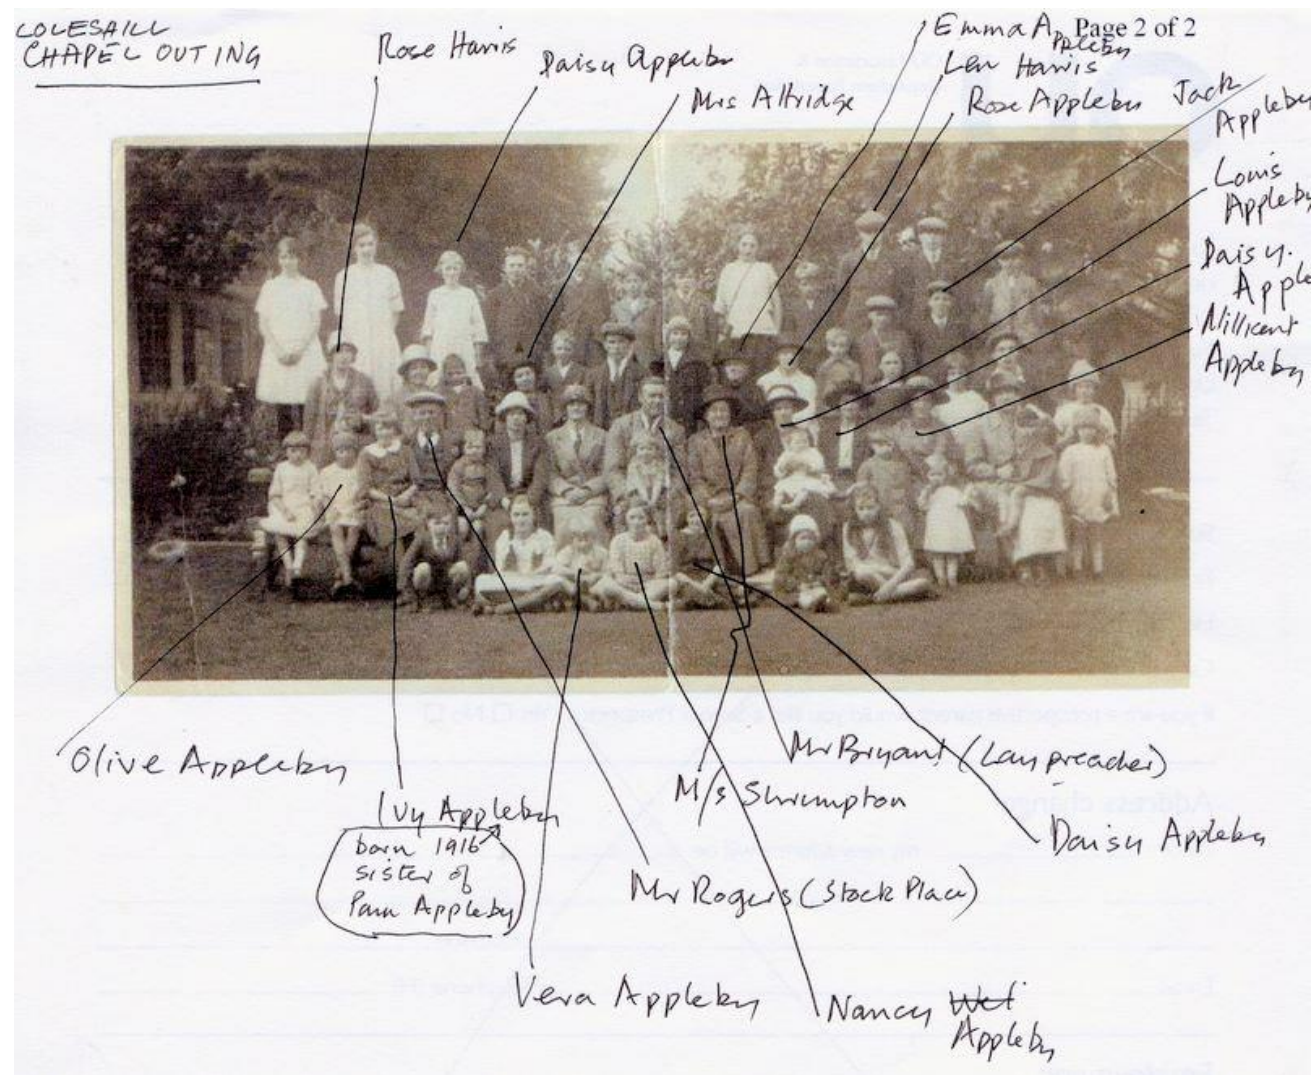 COLESHILL
CHAPEL OUTING
Rose Harris
Daisy Appleby
Mrs Attridge
Emma Appleby
Page 2 of 2
Len Harris
Rose Appleby
Jack
Appleby
Louis
Appleby
Daisy.
Apple
Millicent
Appleby
Olive Appleby
Ivy Appleby
born 1916
sister of
Pam Appleby
Mr Bryant (Lay preacher)
M/s Shrimpton
Daisy Appleby
Mr Rogers (Stock Place)
Vera Appleby
Nancy
Appleby